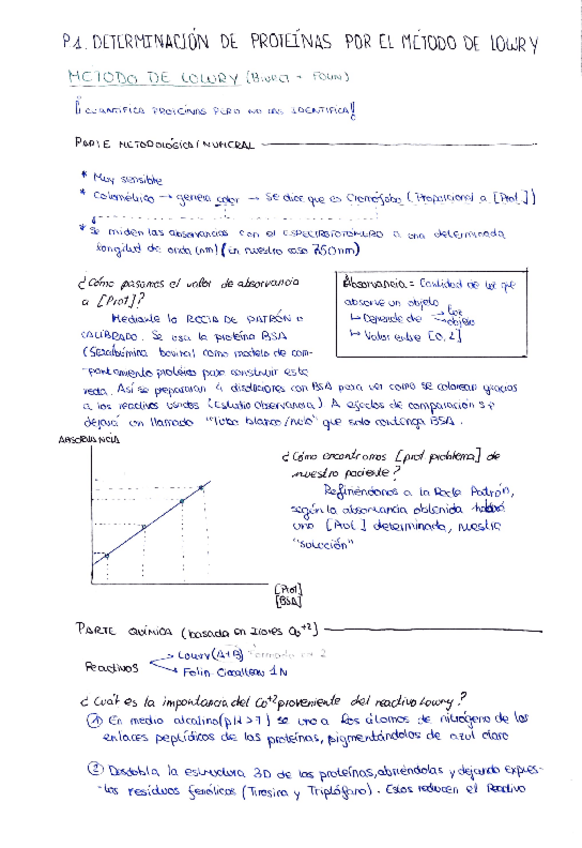 P1. DETERMINACIÓN DE PROTEÍNAS POR EL MÉTODO DE LOWRY
METODO DE LOWRY (Biuret + FOLIN)
¡¡CUANTIFICA PROTEINAS PERO NO LAS IDENTIFICA!
PARTE METODOLÓGICA/NUMERAL
* Muy sensible
* Colorimétrico → genera color → Se dice que es Cromóforo (Proporcional a [Prot.])
* Se miden las absorvancias con el ESPECTROFOTÓMETRO a una determinada
longitud de onda (nm) (en nuestro caso 750nm)
¿Cómo pasamos el valor de absorvancia
a [Prot]?
Mediante la RECTA DE PATRÓN o
CALIBRADO. Se usa la proteína BSA
(Seralbúmina bovina) como modelo de com-
-portamiento proteico para construir esta
recta. Así se prepararan 4 disoluciones con BSA para ver como se colorean gracias
a los reactivos usados (Estudio Absorvancia) A efectos de comparación se
dejará un llamado "tubo blanco/nulo" que solo contenga BSA.
Absorvancia = Cantidad de luz que
absorve un objeto
↳ Depende de → Luz
→ objeto
↳ Valor entre [0,2]
ABSORVANCIA
[Prot]
[BSA]
¿Cómo encontramos [prot problema] de
nuestro paciente?
Refiriéndonos a la Recta Patrón,
según la absorvancia obtenida habrá
una [Prot] determinada, nuestra
"solución"
PARTE QUÍMICA (basada en iones Cu+2)
Reactivos → Lowry (A+B) Formado en 2
→ Folin Ciocalteau 1N
¿Cuál es la importancia del Cu+2 proveniente del reactivo Lowry?
① En medio alcalino (pH > 7) se une a los átomos de nitrógeno de los
enlaces peptídicos de las proteínas, pigmentándolos de azul claro
② Desdobla la estructura 3D de las proteínas, abriéndolas y dejando expues-
-tos residuos fenólicos (Tirosina y Triptófano). Estos reducen el Reactivo